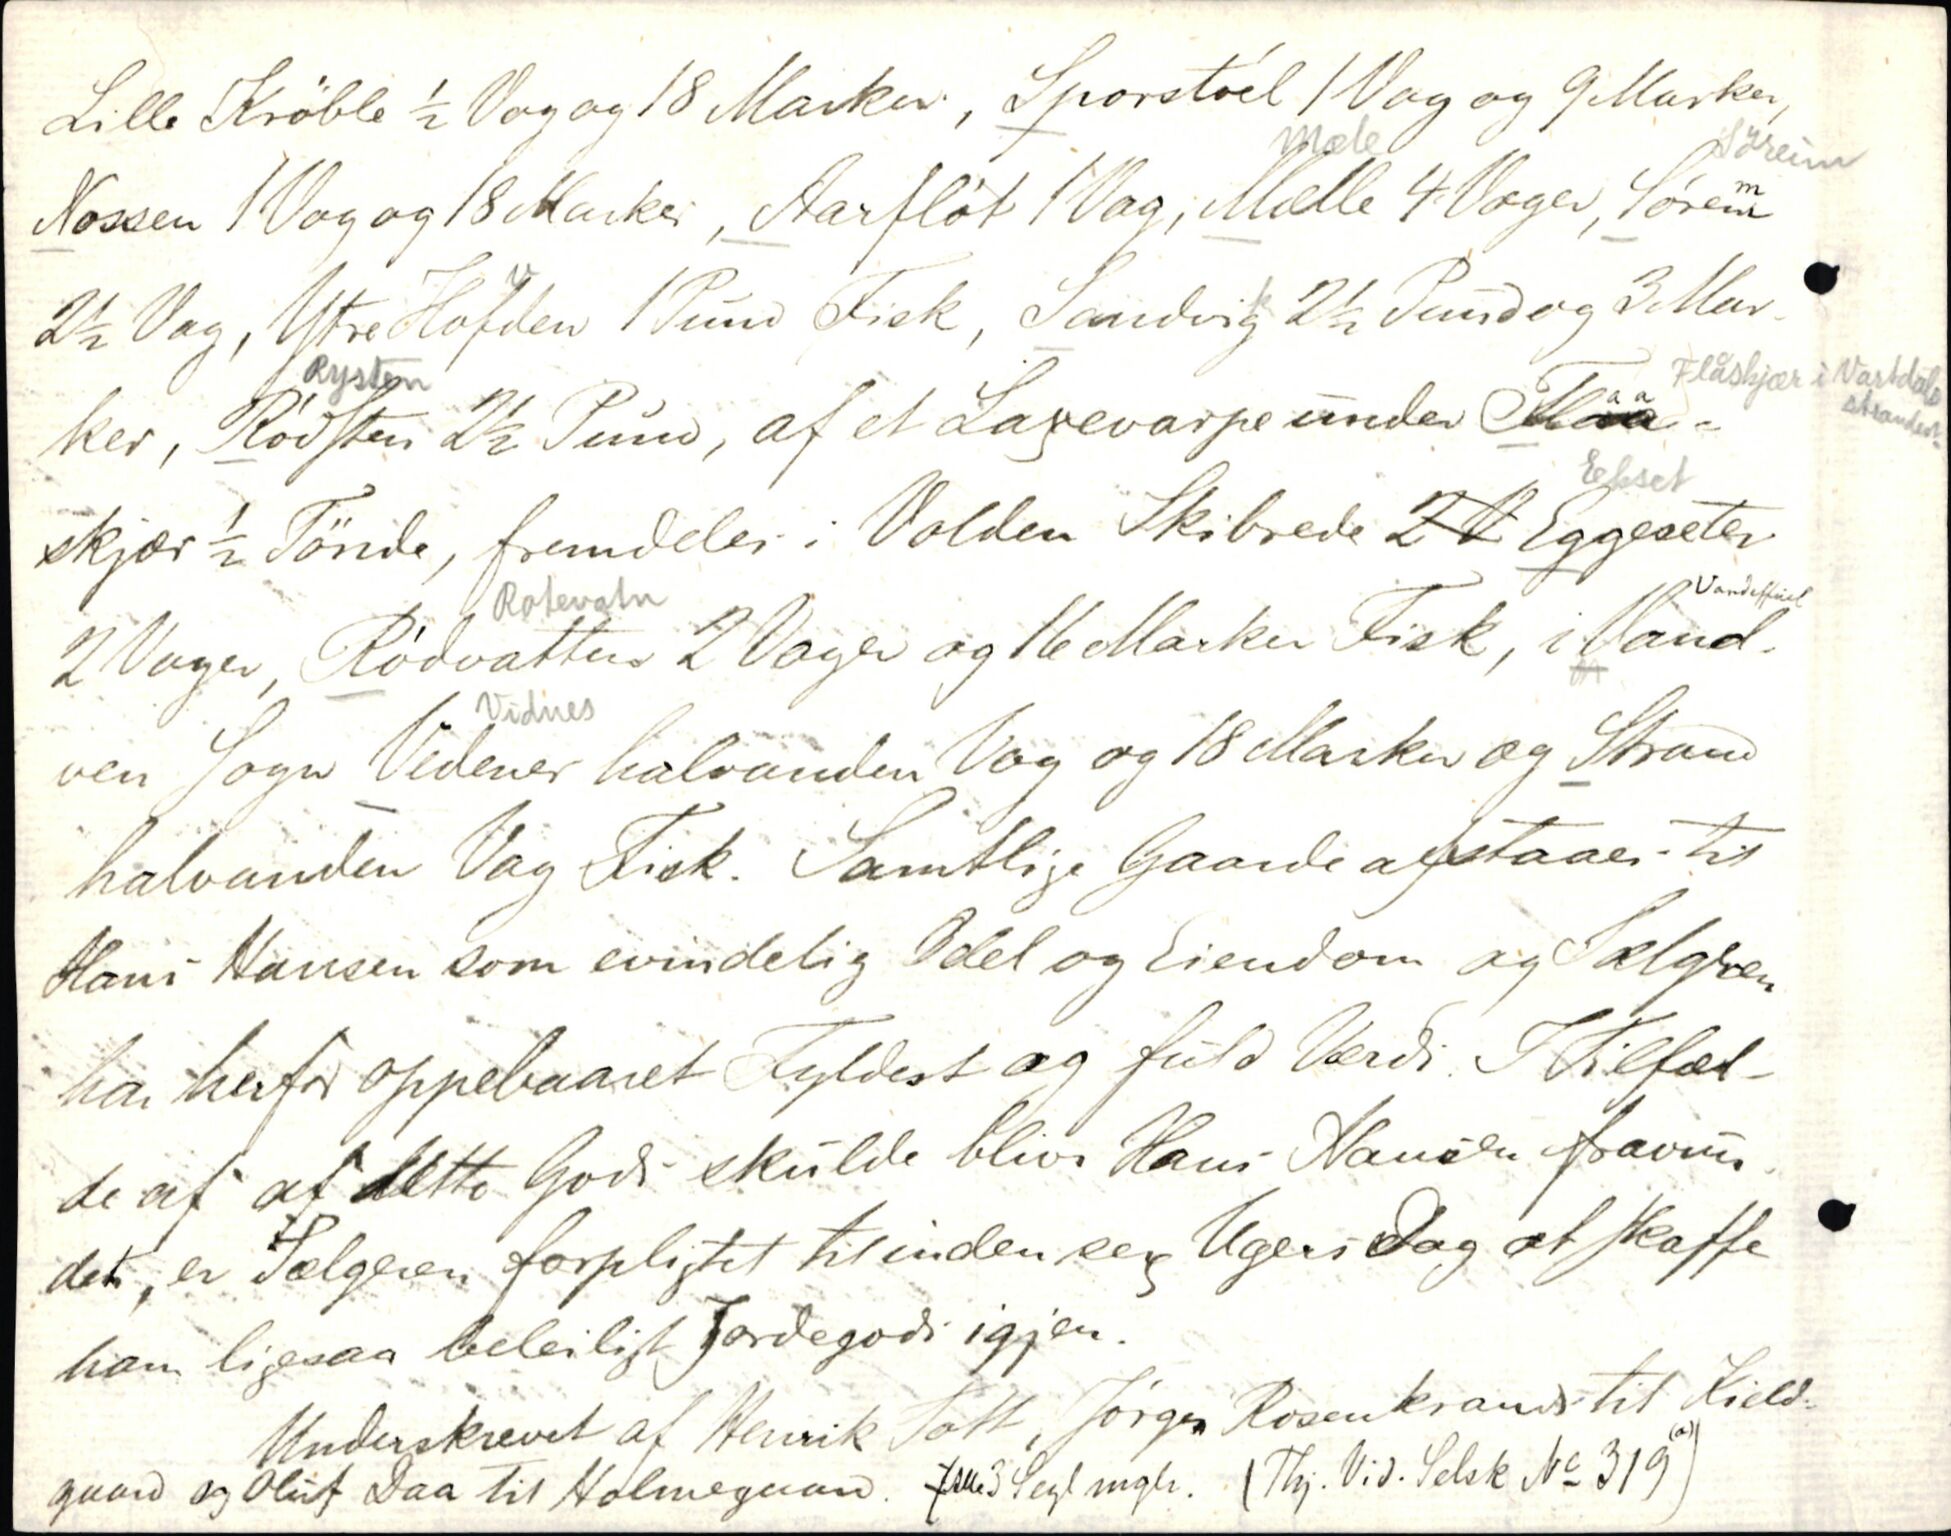 Lille Kröble ½ Vog og 18 Marker, Sporstöel 1 Vog og 9 Marker,
Mæle Söreim
Nossen 1 Vog og 18 Marker, Aarflöt 1 Vog, Mælle 4 Voger, Sörem
2½ Vog, Ytre Hofden 1 Pund Fisk, Sandvik 2½ Pund og 3 Mar-
Rysten Flåskjær i Vartdals
strandens
ker, Rödsten 2½ Pund, af et Laxevarpe under Flaa-
Eikset
skjær ½ Tönde, fremdeles i Volden Skibrede 2 V Eggeseter
Rotevatn
2 Voger, Rödvatten 2 Voger og 16 Marker Fisk, i Vand-
Vidnes
ven Sogn Videnes halvanden Vog og 18 Marker og Strand
halvanden Vog Fisk. Samtlige Gaarde afstaaes til
Hans Hansen som evindelig Odel og Eiendom og Sælgren
har herfor oppebaaret Fyldest og fuld Værdi. I Tilfæl-
de af af dette Gods skulde blive Hans Hansen fravun-
det, er Sælgeren forpligtet til inden sex Ugers Dag at skaffe
ham ligesaa beleiligt Jordegods igjen.
Underskrevet af Henrik Tott, Jörgen Rosenkrands til Kield-
gaard og Oluf Daa til Holmegaard. 3 Segl mgler. (Thj. Vid. Selsk No 319 (a))